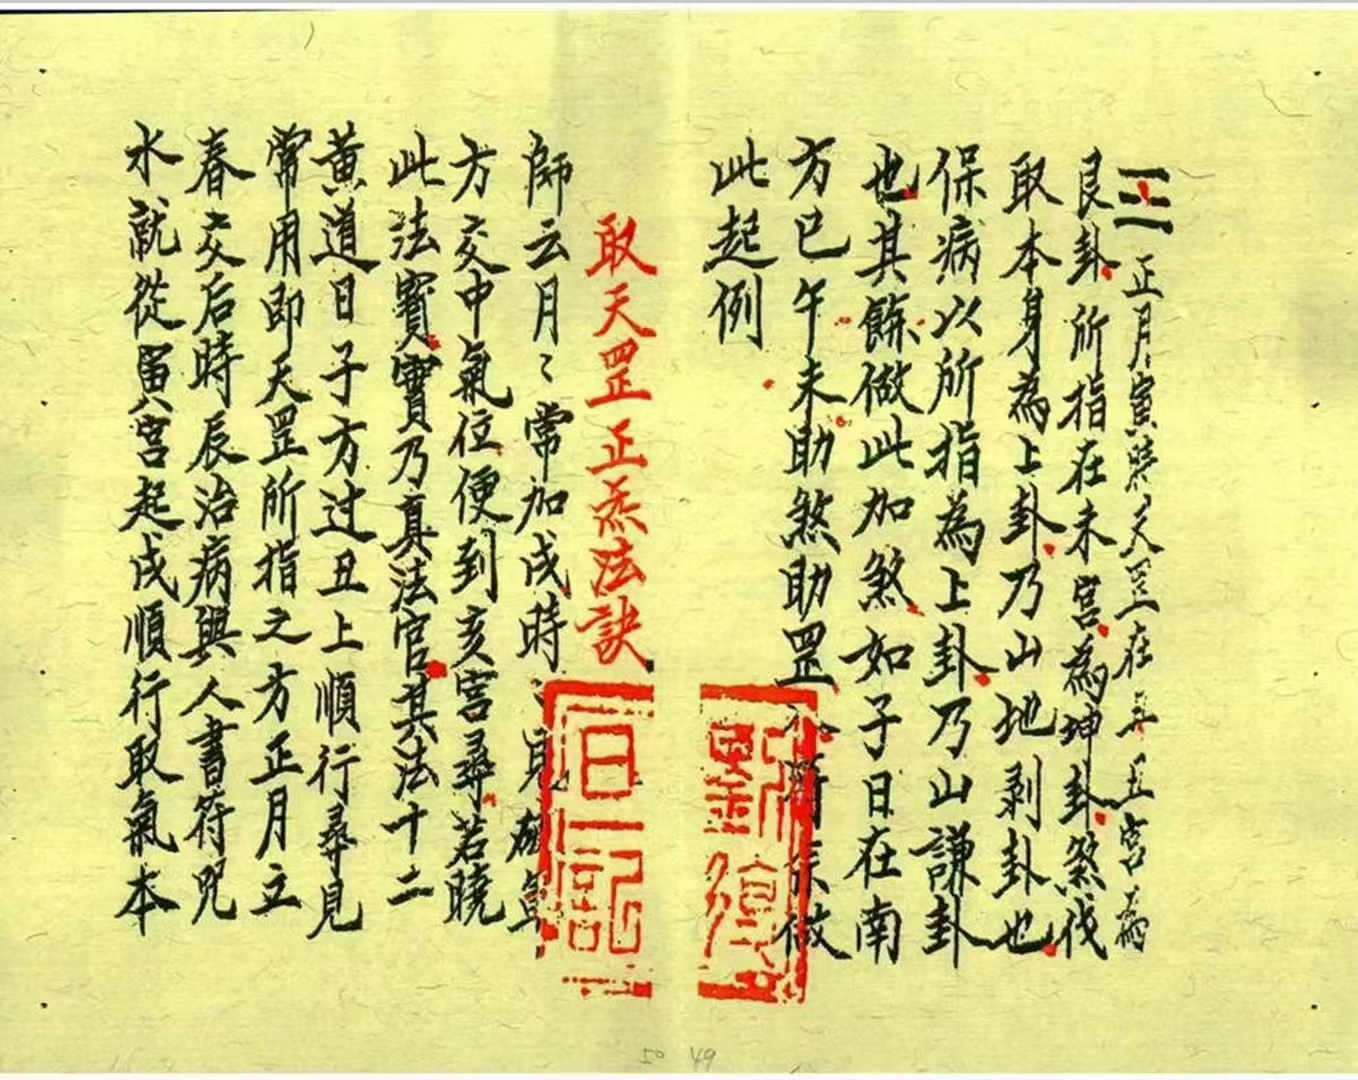 三 正月寅時天罡在年丑宮為
艮卦所指在未宮為坤卦煞伐
取本身為上卦乃山地剥卦也
保病以所指為上卦乃山謙卦
也其餘倣此加煞如子日在南
方巳午未助煞助罡
倣
此起例
取天罡正炁法訣
師云月〻常加戌時〻見
方交中氣位便到亥宮尋若曉
此法寳實乃真法官其法十二
黃道日子方过丑上順行尋見
常用即天罡所指之方正月立
春交后時辰治病與人書符咒
水就從寅宮起戌順行取氣本
日記
劉
50 49